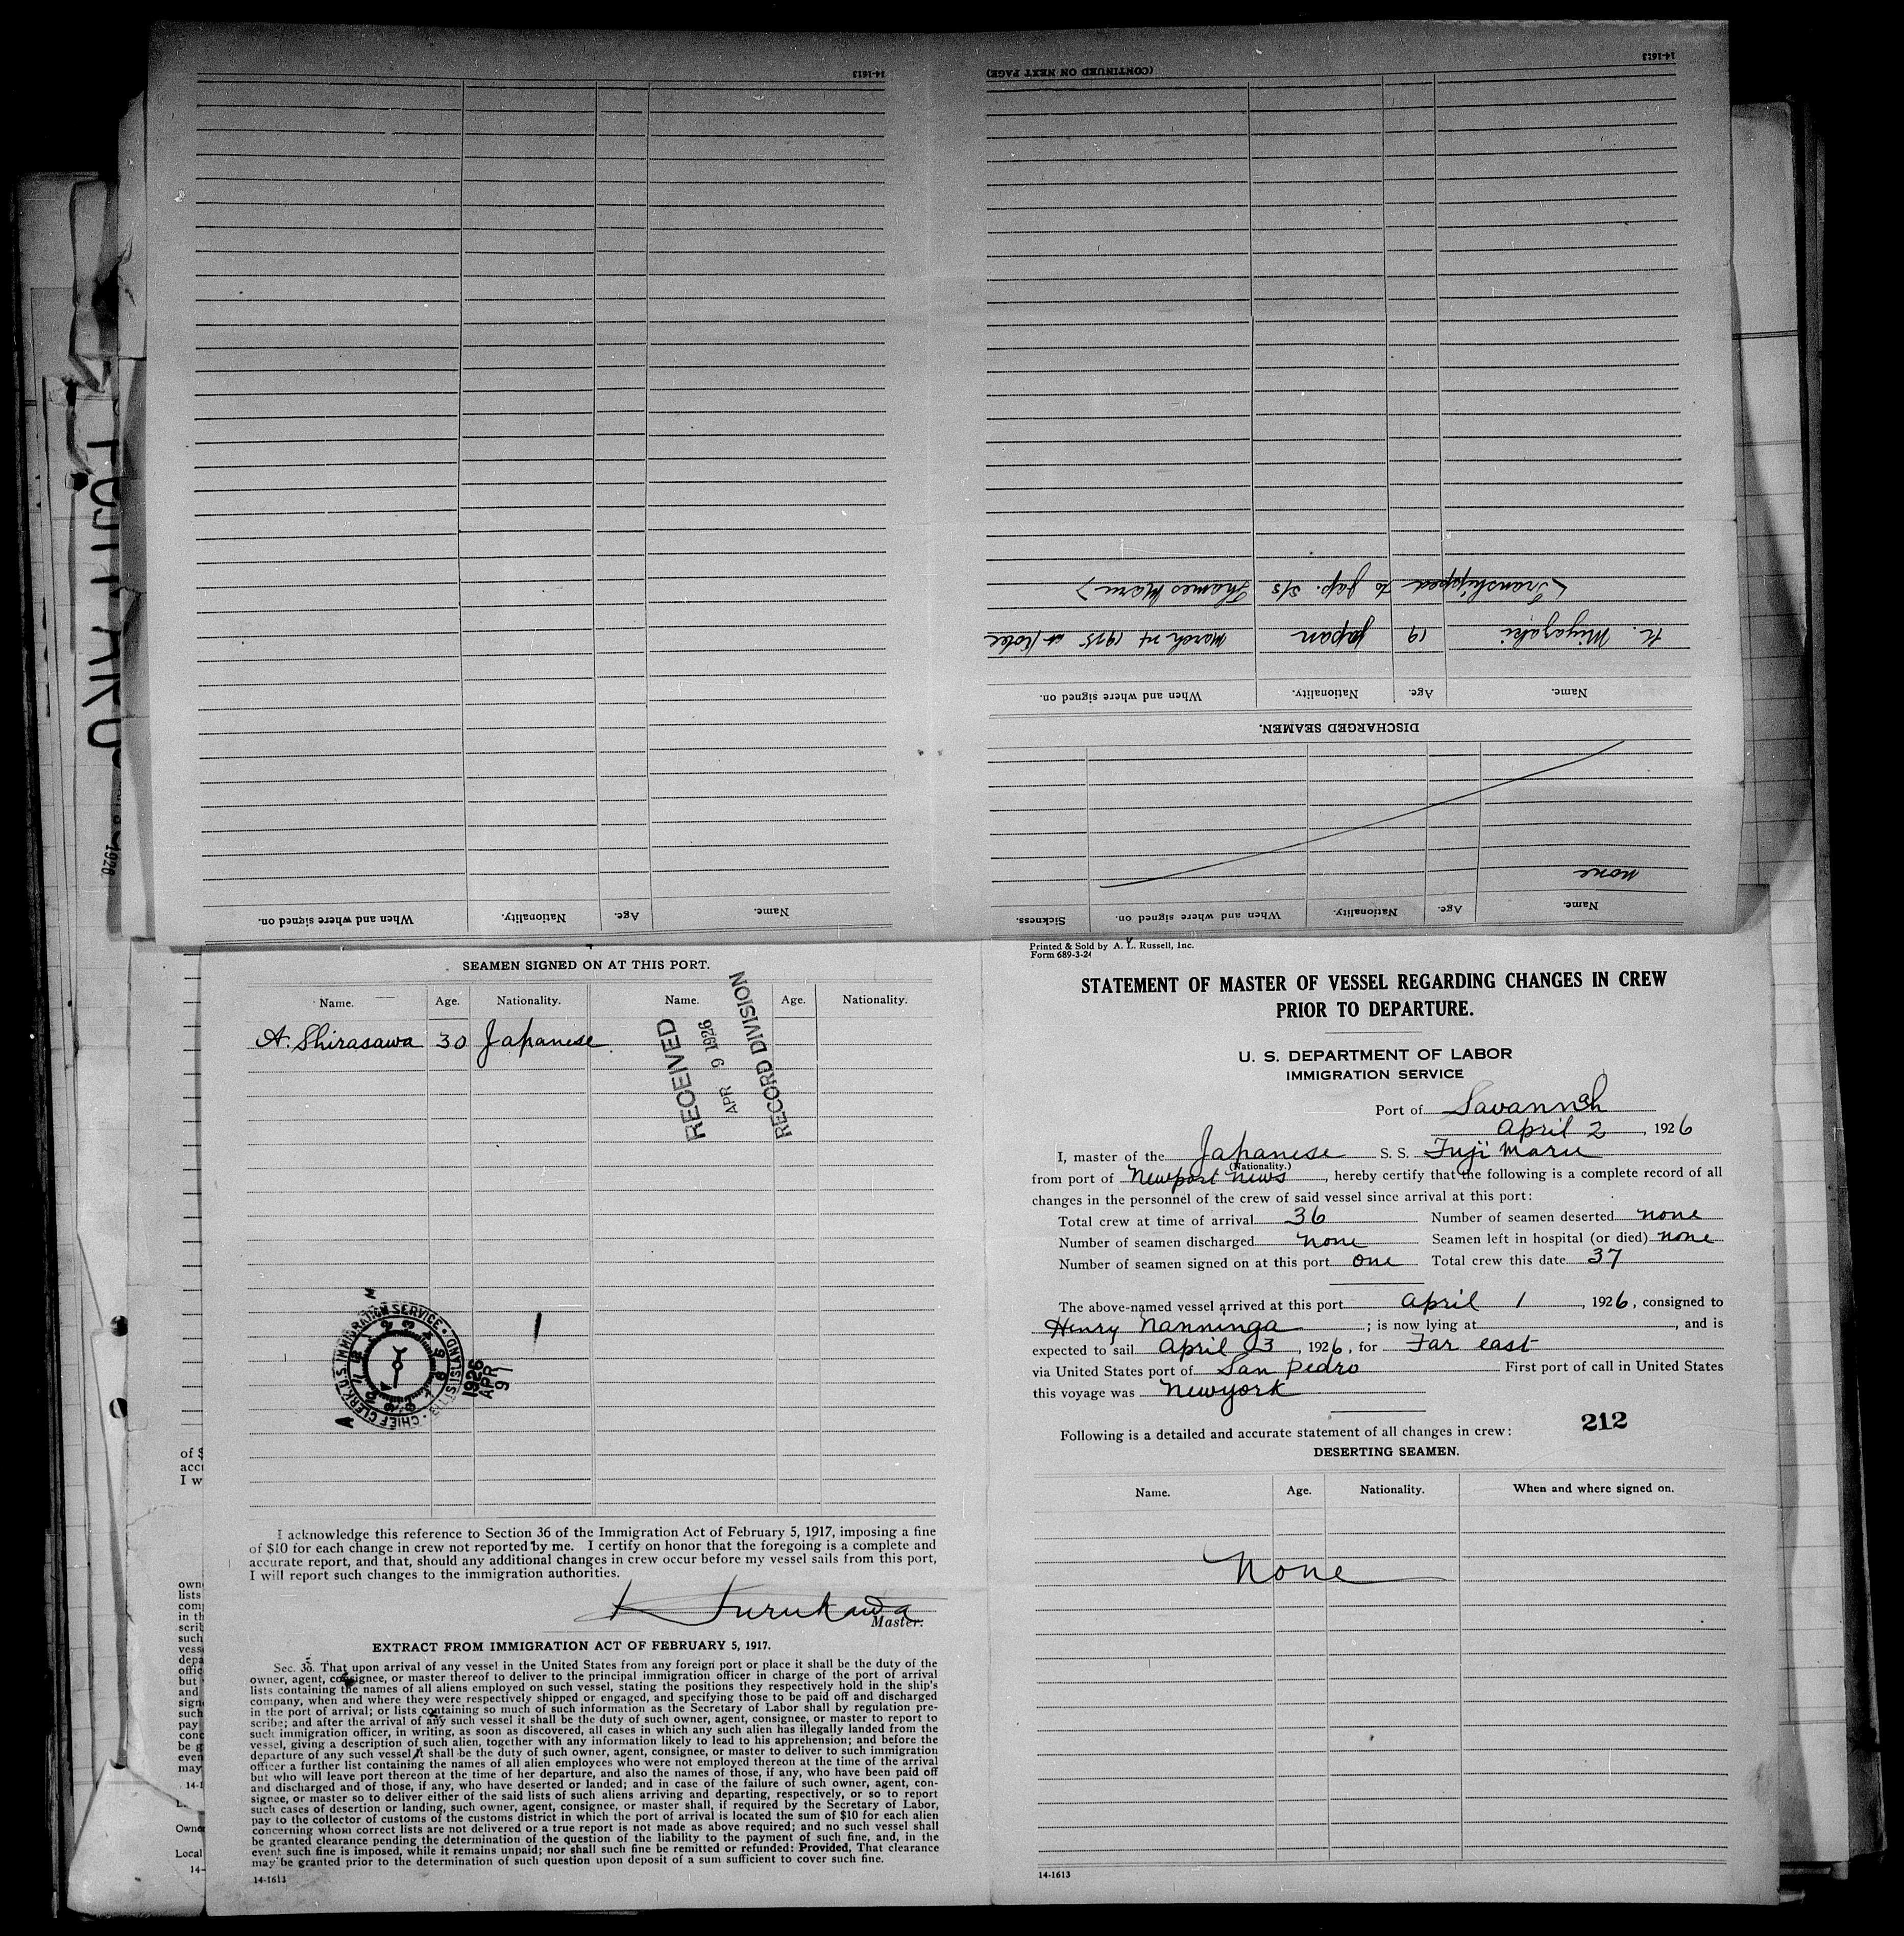 14-1613
Name.
Age.
Nationality.
When and where signed on.
14-1613
(CONTINUED ON NEXT PAGE)
Name.
Age.
Nationality.
When and where signed on.
Sickness.
none
DISCHARGED SEAMEN.
Name.
Age.
Nationality.
When and where signed on.
Miyazaki 19 Japan March 1925 at Kobe
(Transhipped to Jap. S/S Thames Maru)
SEAMEN SIGNED ON AT THIS PORT.
Name. Age. Nationality. Name. Age. Nationality.
A. Shirasawa 30 Japanese
RECEIVED
APR 9 1926
RECORD DIVISION
CHIEF CLERK U.S. IMMIGRATION SERVICE · ELLIS ISLAND
1926
APR
9
I acknowledge this reference to Section 36 of the Immigration Act of February 5, 1917, imposing a fine
of $10 for each change in crew not reported by me. I certify on honor that the foregoing is a complete and
accurate report, and that, should any additional changes in crew occur before my vessel sails from this port,
I will report such changes to the immigration authorities.
K Furukawa
Master.
EXTRACT FROM IMMIGRATION ACT OF FEBRUARY 5, 1917.
Sec. 36. That upon arrival of any vessel in the United States from any foreign port or place it shall be the duty of the
owner, agent, consignee, or master thereof to deliver to the principal immigration officer in charge of the port of arrival
lists containing the names of all aliens employed on such vessel, stating the positions they respectively hold in the ship's
company, when and where they were respectively shipped or engaged, and specifying those to be paid off and discharged
in the port of arrival; or lists containing so much of such information as the Secretary of Labor shall by regulation pre-
scribe; and after the arrival of any such vessel it shall be the duty of such owner, agent, consignee, or master to report to
such immigration officer, in writing, as soon as discovered, all cases in which any such alien has illegally landed from the
vessel, giving a description of such alien, together with any information likely to lead to his apprehension; and before the
departure of any such vessel it shall be the duty of such owner, agent, consignee, or master to deliver to such immigration
officer a further list containing the names of all alien employees who were not employed thereon at the time of the arrival
but who will leave port thereon at the time of her departure, and also the names of those, if any, who have been paid off
and discharged and of those, if any, who have deserted or landed; and in case of the failure of such owner, agent, con-
signee, or master so to deliver either of the said lists of such aliens arriving and departing, respectively, or so to report
such cases of desertion or landing, such owner, agent, consignee, or master shall, if required by the Secretary of Labor,
pay to the collector of customs of the customs district in which the port of arrival is located the sum of $10 for each alien
concerning whom correct lists are not delivered or a true report is not made as above required; and no such vessel shall
be granted clearance pending the determination of the question of the liability to the payment of such fine, and, in the
event such fine is imposed, while it remains unpaid; nor shall such fine be remitted or refunded: Provided, That clearance
may be granted prior to the determination of such question upon deposit of a sum sufficient to cover such fine.
14-1613
Printed & Sold by A. L. Russell, Inc.
Form 689-3-24
STATEMENT OF MASTER OF VESSEL REGARDING CHANGES IN CREW
PRIOR TO DEPARTURE.
U. S. DEPARTMENT OF LABOR
IMMIGRATION SERVICE
Port of Savannah
April 2, 1926
I, master of the Japanese S. S. Fuji Maru
(Nationality.)
from port of Newport News, hereby certify that the following is a complete record of all
changes in the personnel of the crew of said vessel since arrival at this port:
Total crew at time of arrival 36 Number of seamen deserted none
Number of seamen discharged none Seamen left in hospital (or died) none
Number of seamen signed on at this port one Total crew this date 37
The above-named vessel arrived at this port April 1, 1926, consigned to
Henry Nanninga; is now lying at , and is
expected to sail April 3, 1926, for Far east
via United States port of San Pedro First port of call in United States
this voyage was Newyork
212
Following is a detailed and accurate statement of all changes in crew:
DESERTING SEAMEN.
Name. Age. Nationality. When and where signed on.
None
14-1613